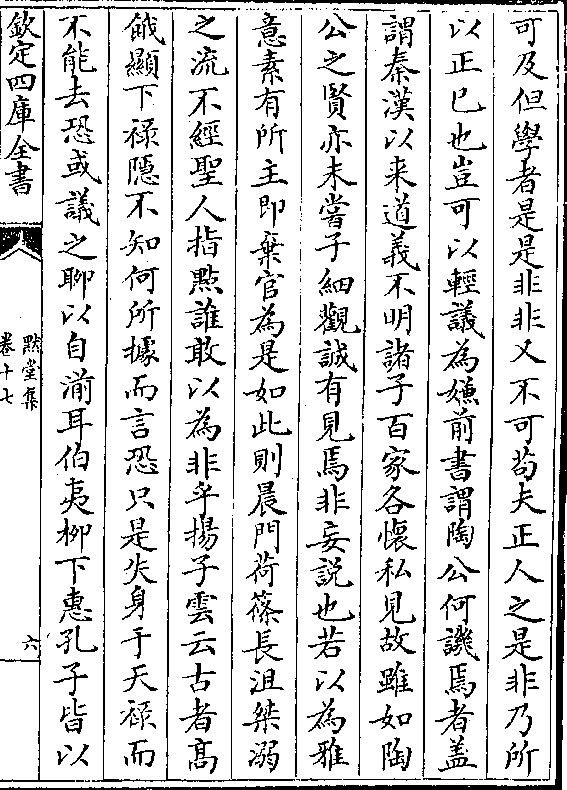 可及但學者是是非非又不可苟夫正人之是非乃所
以正已也豈可以輕議為嫌前書謂陶公何譏焉者盖
謂秦漢以来道義不明諸子百家各懐私見故雖如陶
公之賢亦未嘗子細觀誠有見焉非妄説也若以為雅
意素有所主即棄官為是如此則晨門荷蓧長沮桀溺
之流不經聖人指㸃誰敢以為非乎揚子雲云古者髙
餓顯下禄隠不知何所據而言恐只是失身于天禄而
不能去恐或議之聊以自湔耳伯夷栁下惠孔子皆以
欽定四庫全書
默堂集
卷十七
六